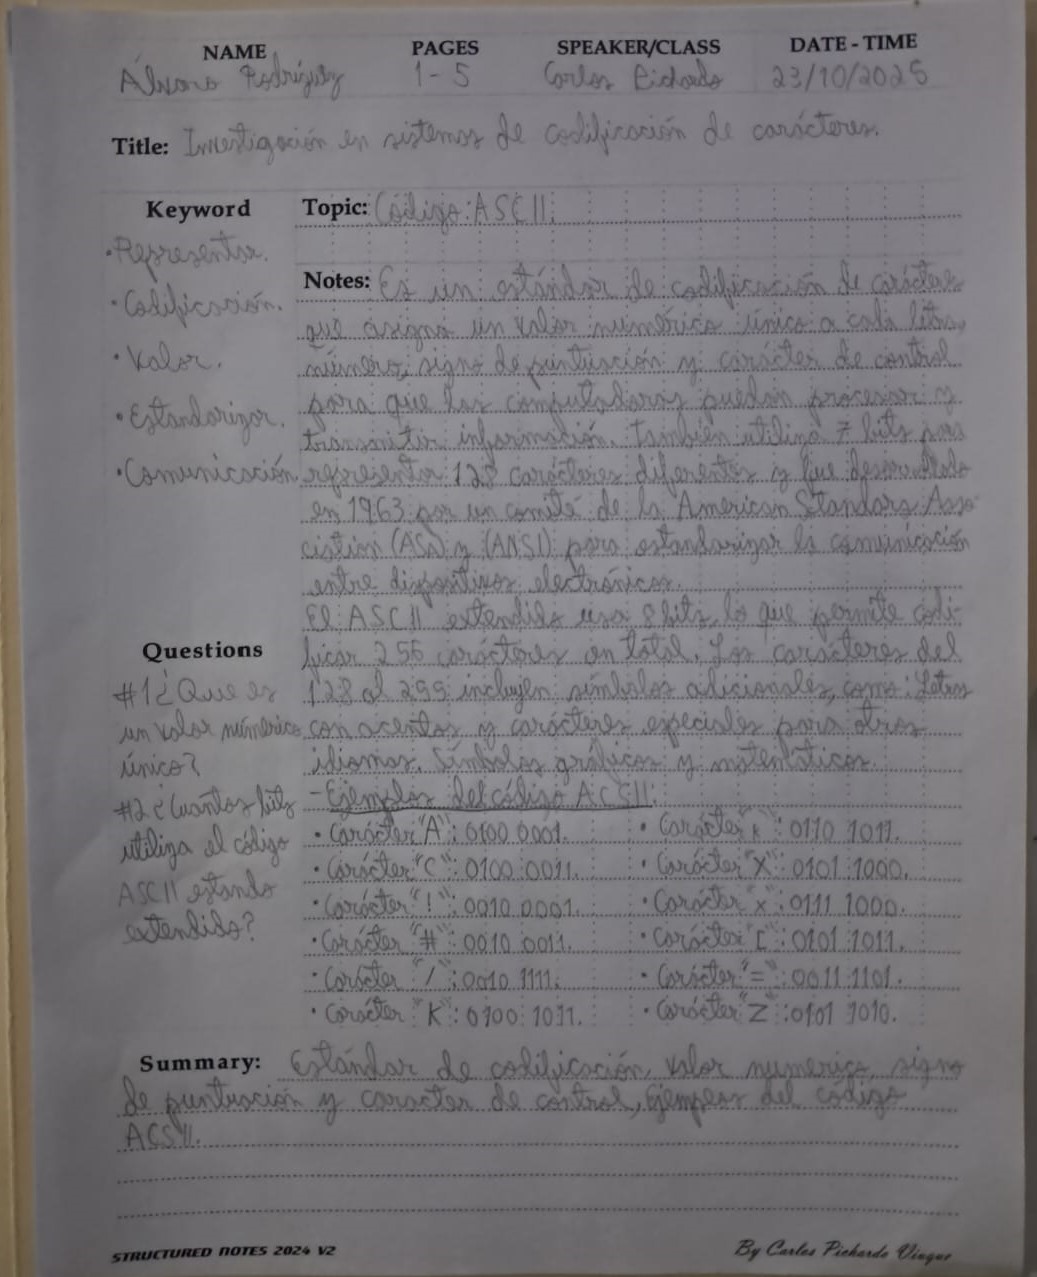 NAME PAGES SPEAKER/CLASS DATE - TIME
Álvaro Rodríguez 1 - 5 Carlos Pichardo 23/10/2025
Title: Investigación en sistemas de codificación de carácteres.
Keyword
• Representar.
• Codificación.
• Valor.
• Estandarizar.
• Comunicación
Topic: Código ASCII.
Notes: Es un estándar de codificación de carácteres
que asigna un valor numérico único a cada letra,
número, signo de puntuación y carácter de control
para que las computadoras puedan procesar y
transmitir información. También utiliza 7 bits para
representar 128 carácteres diferentes y fue desarrollado
en 1963 por un comité de la American Standars Asso-
ciation (ASA) y (ANSI) para estandarizar la comunicación
entre dispositivos electrónicos.
El ASCII extendido usa 8 bits, lo que permite codi-
ficar 256 carácteres en total. Los carácteres del
128 al 255 incluyen símbolos adicionales, como: Letras
con acentos y carácteres especiales para otros
idiomas. Símbolos gráficos y matemáticos.
- Ejemplos del código ACSII.
• Carácter "A": 0100 0001. • Carácter "k": 0110 1011.
• Carácter "C": 0100 0011. • Carácter "X": 0101 1000.
• Carácter "!": 0010 0001. • Carácter "x": 0111 1000.
• Carácter "#": 0010 0011. • Carácter "[": 0101 1011.
• Carácter "/": 0010 1111. • Carácter "=": 0011 1101.
• Carácter "K": 0100 1011. • Carácter "Z": 0101 1010.
Questions
#1 ¿Que es
un valor númerico
único?
#2 ¿Cuantos bits
utiliza el código
ASCII estando
extendido?
Summary: Estándar de codificación, valor numerico, signo
de puntuación y caracter de control, ejemplos del código
ACSII.
STRUCTURED NOTES 2024 V2
By Carlos Pichardo Viuque